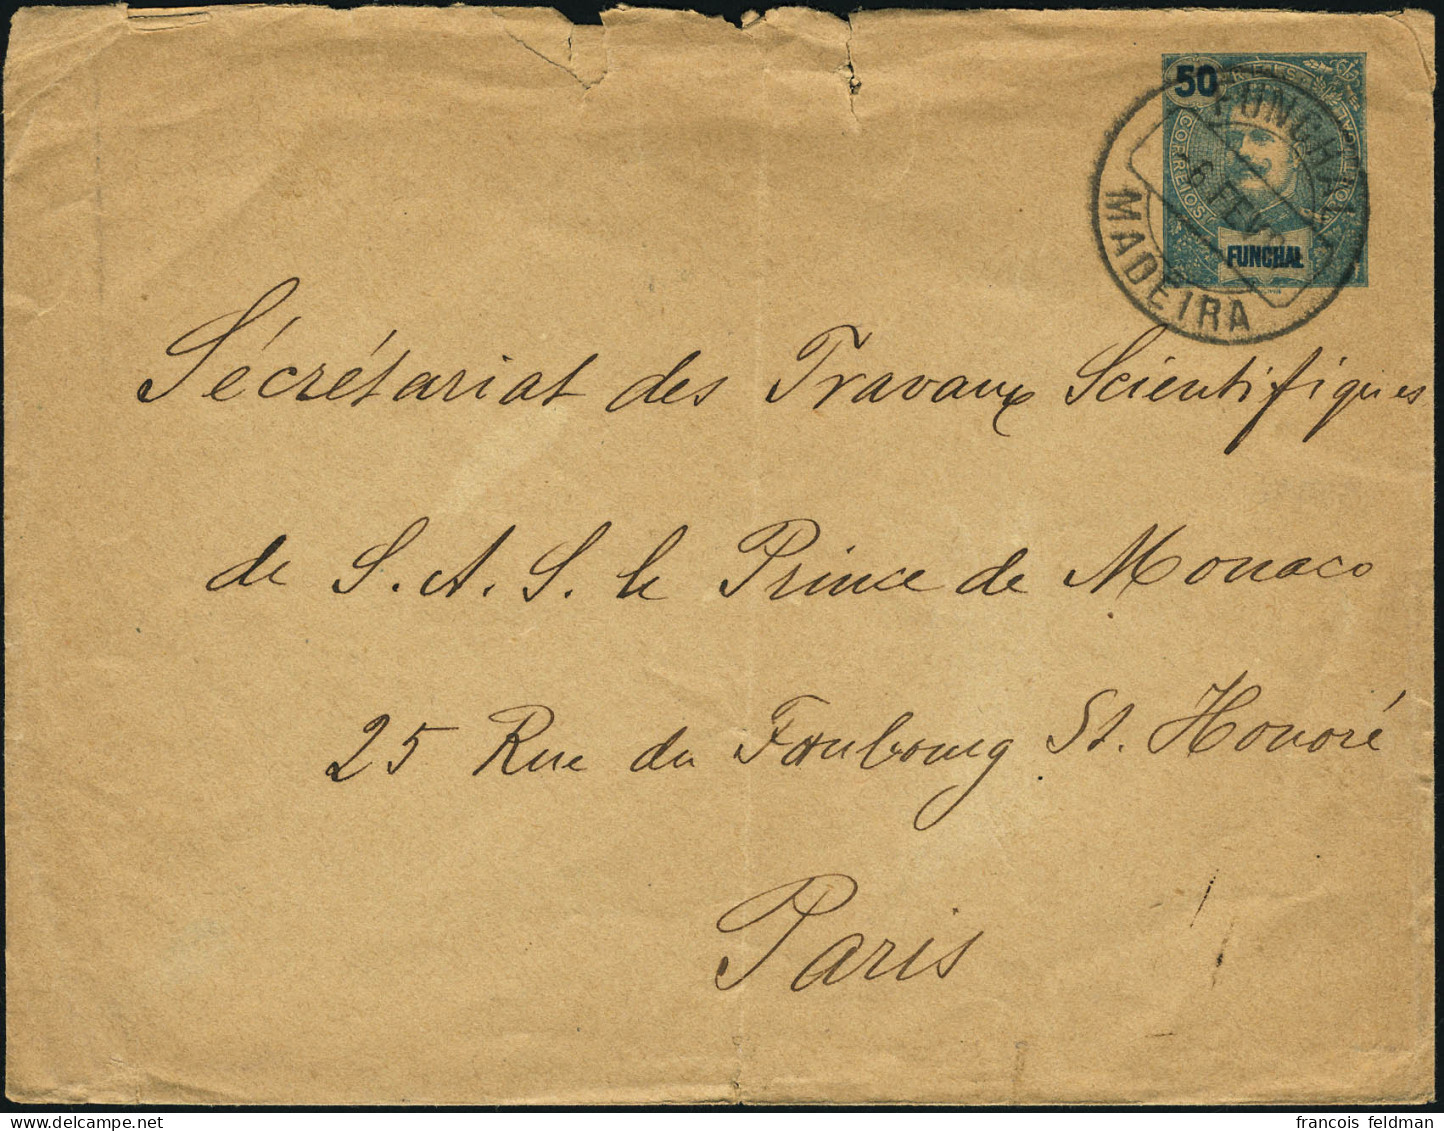 50
REIS
CORREIOS
PORTUGAL
FUNCHAL
FUNCHAL
6 FEV
MADEIRA
Sécrétariat des Travaux Scientifiques
de S. A. S. le Prince de Monaco
25 Rue du Faubourg St. Honoré
Paris
francois feldman